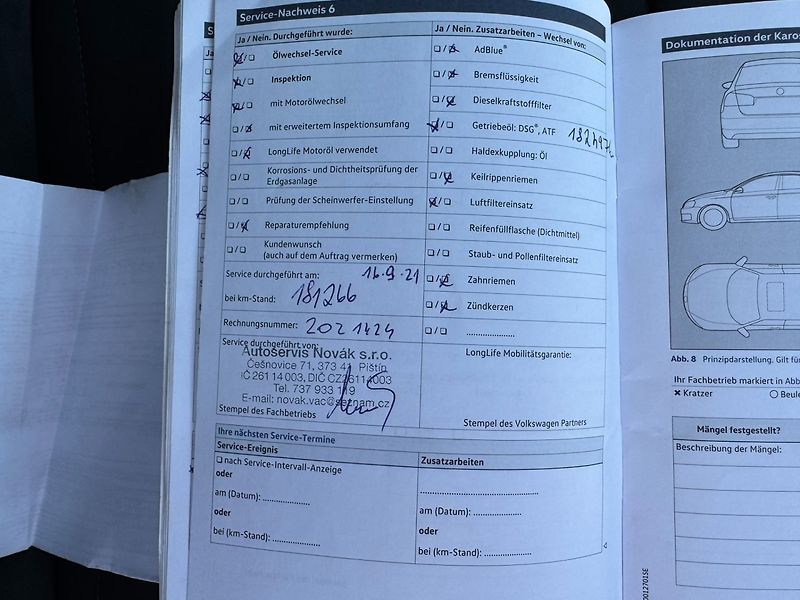 Service-Nachweis 6
Ja / Nein. Durchgeführt wurde:
Ölwechsel-Service
Inspektion
mit Motorölwechsel
mit erweitertem Inspektionsumfang
LongLife Motoröl verwendet
Korrosions- und Dichtheitsprüfung der
Erdgasanlage
Prüfung der Scheinwerfer-Einstellung
Reparaturempfehlung
Kundenwunsch
(auch auf dem Auftrag vermerken)
Service durchgeführt am: 16.9.21
bei km-Stand: 181266
Rechnungsnummer: 2021424
Service durchgeführt von:
Autoservis Novák s.r.o.
Češnovice 71, 373 41 Pištín
IČ 26114003, DIČ CZ26114003
Tel. 737 933 119
E-mail: novak.vac@seznam.cz
Stempel des Fachbetriebs
Ja / Nein. Zusatzarbeiten – Wechsel von:
AdBlue®
Bremsflüssigkeit
Dieselkraftstofffilter
Getriebeöl: DSG®, ATF
Haldexkupplung: Öl
Keilrippenriemen
Luftfiltereinsatz
Reifenfüllflasche (Dichtmittel)
Staub- und Pollenfiltereinsatz
Zahnriemen
Zündkerzen
LongLife Mobilitätsgarantie:
Stempel des Volkswagen Partners
Ihre nächsten Service-Termine
Service-Ereignis
nach Service-Intervall-Anzeige
oder
am (Datum):
oder
bei (km-Stand):
Zusatzarbeiten
am (Datum):
oder
bei (km-Stand):
Dokumentation der Karos
Abb. 8 Prinzipdarstellung. Gilt fü
Ihr Fachbetrieb markiert in Abb
Kratzer
Beule
Mängel festgestellt?
Beschreibung der Mängel: